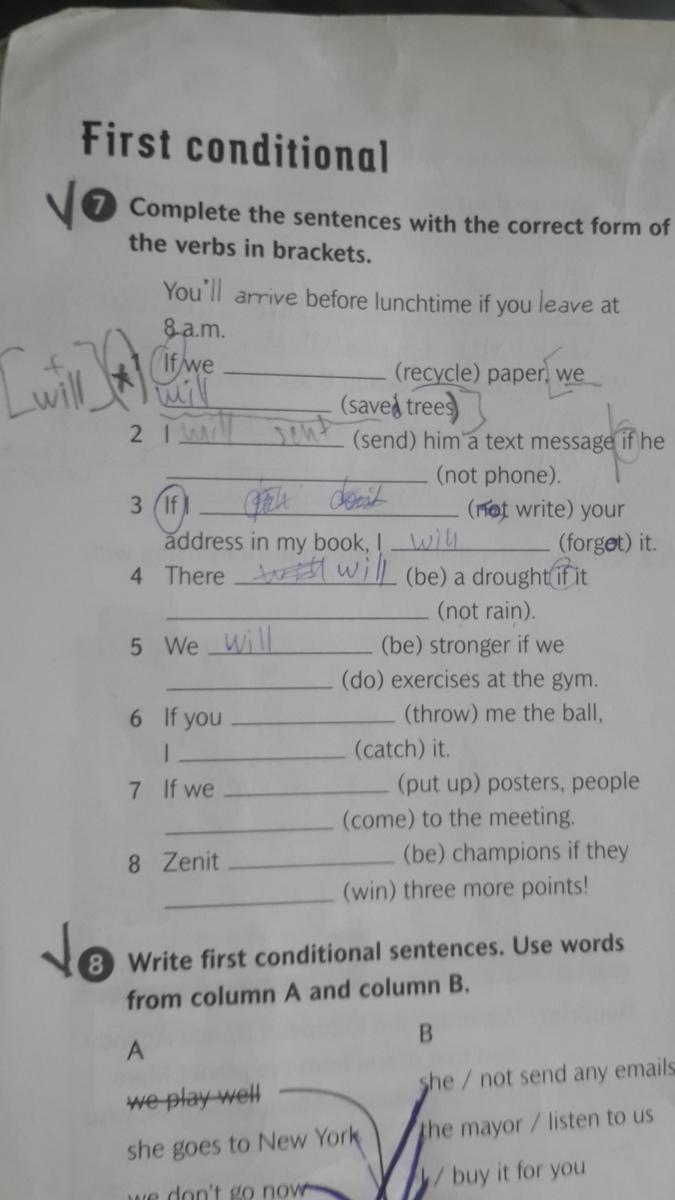 First conditional
7 Complete the sentences with the correct form of
the verbs in brackets.
You'll arrive before lunchtime if you leave at
8 a.m.
[+ will] (*) 1 If we ____________ (recycle) paper, we
will ____________ (save trees)
2 I will sent ____________ (send) him a text message if he
____________ (not phone).
3 If I ____________ don't ____________ (not write) your
address in my book, I will ____________ (forget) it.
4 There will ____________ (be) a drought if it
____________ (not rain).
5 We will ____________ (be) stronger if we
____________ (do) exercises at the gym.
6 If you ____________ (throw) me the ball,
I ____________ (catch) it.
7 If we ____________ (put up) posters, people
____________ (come) to the meeting.
8 Zenit ____________ (be) champions if they
____________ (win) three more points!
8 Write first conditional sentences. Use words
from column A and column B.
A
B
we play well
she / not send any emails
she goes to New York
the mayor / listen to us
we don't go now
/ buy it for you